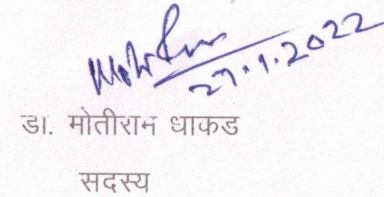 27.1.2022
डा. मोतीराम धाकड
सदस्य